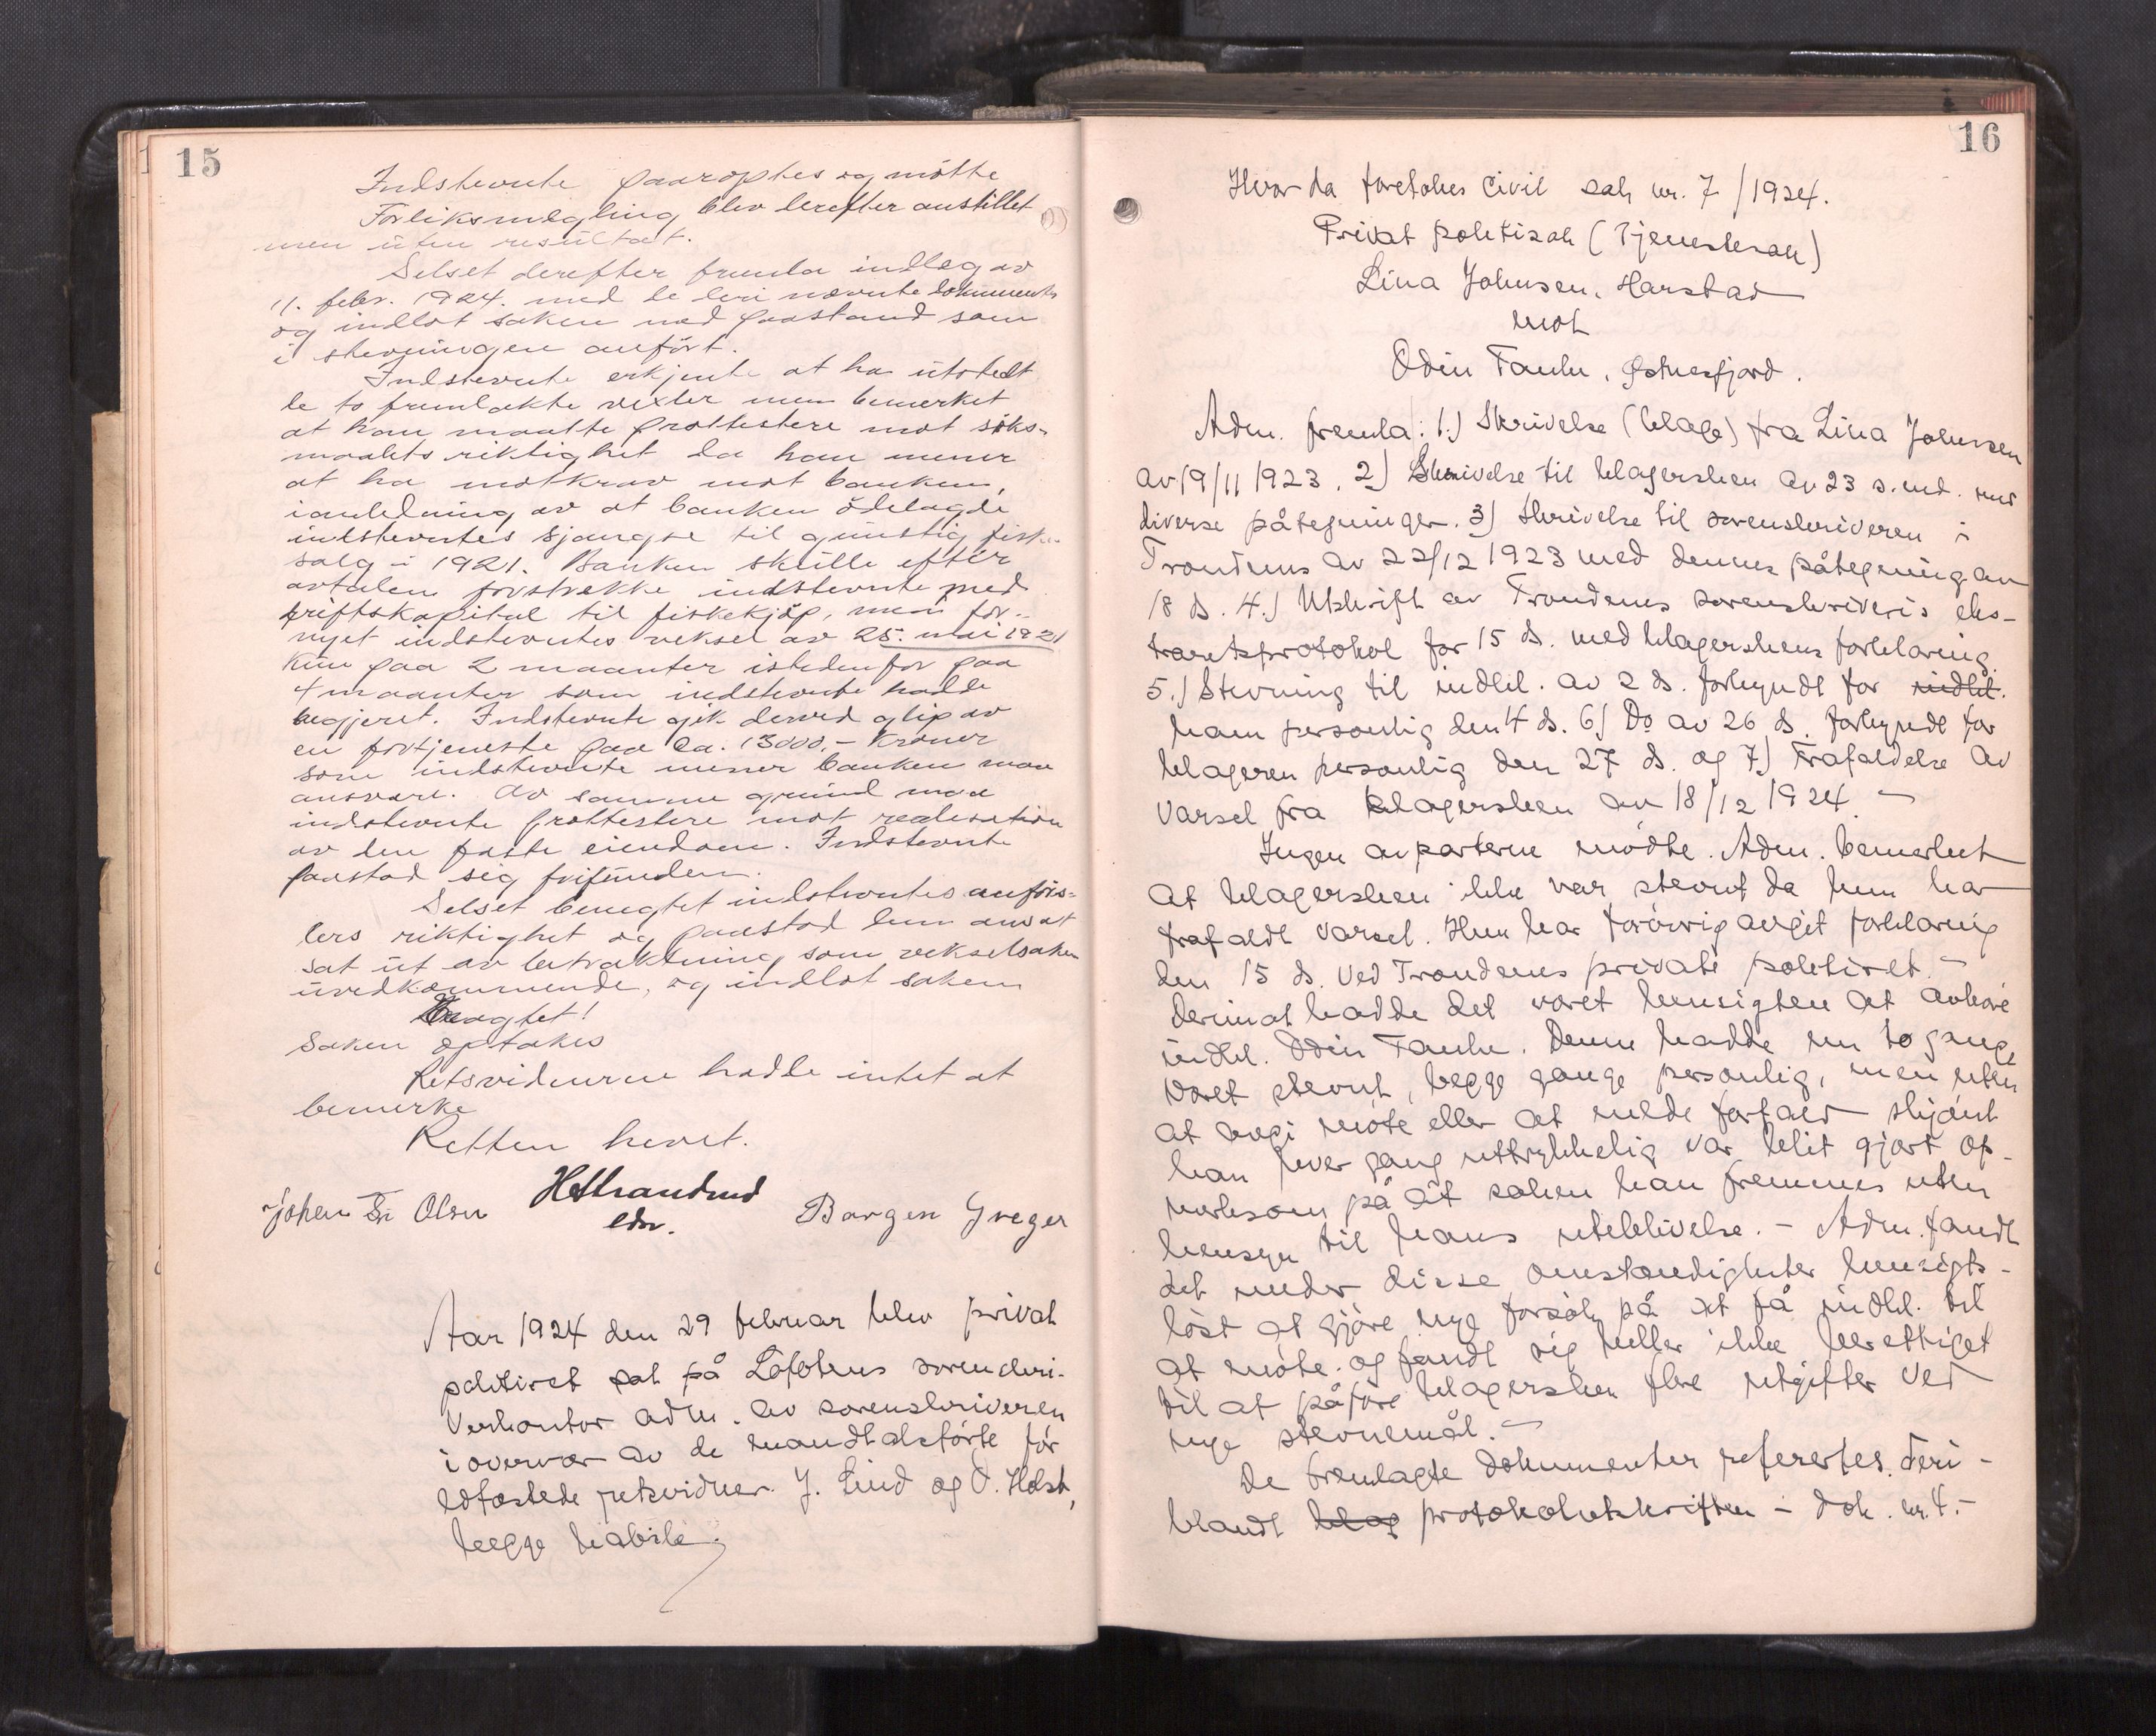 15
Indstevnte paaroptes og mötte
Forliksmægling blev derefter anstillet
men uten resultat.
Selset derefter fremla indlæg av
11. febr. 1924. med de deri nævnte dokumenter
og indlot saken med paastand som
i stevningen anfört.
Indstevnte erkjente at ha utstedt
de to fremlakte vexler men bemerket
at han maatte prottestere mot söks-
maalets riktighet da han mener
at ha motkrav mot banken,
ianledning av at banken ödelagde
indstevntes sjangse til gunstig fiske-
salg i 1921. Banken skulle efter
avtalen forstrække indstevnte med
driftskapital til fiskekjöp, men for-
nyet indstevntes veksel av 25. mai 1921
kun paa 2 maanter istedenfor paa
4 maanter som indstevnte hadde
begjeret. Indstevnte gik derved glip av
en fortjeneste paa ca. 13000,- kroner
som indstevnte mener banken maa
ansvare. Av samme grund maa
indstevnte prottestere mot realisation
av den faste eiendom. Indstevnte
paastod sig frifunden.
Selset benegtet indstevntes anförs-
lers riktighet og paastod dem ansat
sat ut av betraktning som vekselsaken
uvedkommende, og indlot saken
Eragtet!
Saken optakes
Retsvidnerne hadde intet at
bemerke
Retten hevet.
Johan Fr Olsen HStrandrud Borger Greger
edsv.
Aar 1924 den 29 februar blev privat
politiret sat på Lofotens sorenskri-
verkontor adm. av sorenskriveren
i overvær av de mandtalsförte for
edfæstede retsvidner J. Lind og O. Holst,
begge habile.
16
Hvor da foretokes civil sak nr. 7/1924.
Privat politisak (Tjenestesak)
Lina Johnsen, Harstad
mot
Odin Fauln, Østnesfjord.
Adm. fremla: 1.) Skrivelse (klage) fra Lina Johnsen
av 19/11 1923. 2) Skrivelse til klagersken av 23 s. md. med
diverse påtegninger. 3) Skrivelse til sorenskriveren i
Trondenes av 22/12 1923 med dennes påtegning av
18 ds. 4.) Utskrift av Trondenes sorenskriveris eks-
traretsprotokol for 15 ds. med klagerskens forklaring.
5.) Stevning til indkl. av 2 ds. forkyndt for indkl.
ham personlig den 4 ds. 6) Do av 26 ds. forkyndt for
klageren personlig den 27 ds. og 7.) Frafaldelse av
varsel fra klagersken av 18/12 1924. -
Ingen av parterne mödte. Adm. bemerket
at klagersken ikke var stevnt da hun har
frafaldt varsel. Hun har forövrig avgit forklaring
den 15 ds. ved Trondenes private politiret. -
Derimot hadde det været hensigten at avhöre
indkl. Odin Fauln. Denne hadde nu to gange
været stevnt, begge gange personlig, men uten
at avgi möte eller at melde forfald skjönt
han hver gang uttrykkelig var blit gjort op-
merksom på at saken kan fremmes uten
hensyn til hans uteblivelse. - Adm. fandt
det under disse omstændigheter hensigts-
löst at gjöre nye forsök på at få indkl. til
at möte. og fandt sig heller ikke berettiget
til at påföre klagersken flere utgifter ved
nye stevnemål. -
De fremlagte dokumenter refererttes. Deri-
blandt klag protokolutskriften - dok. nr. 4. -